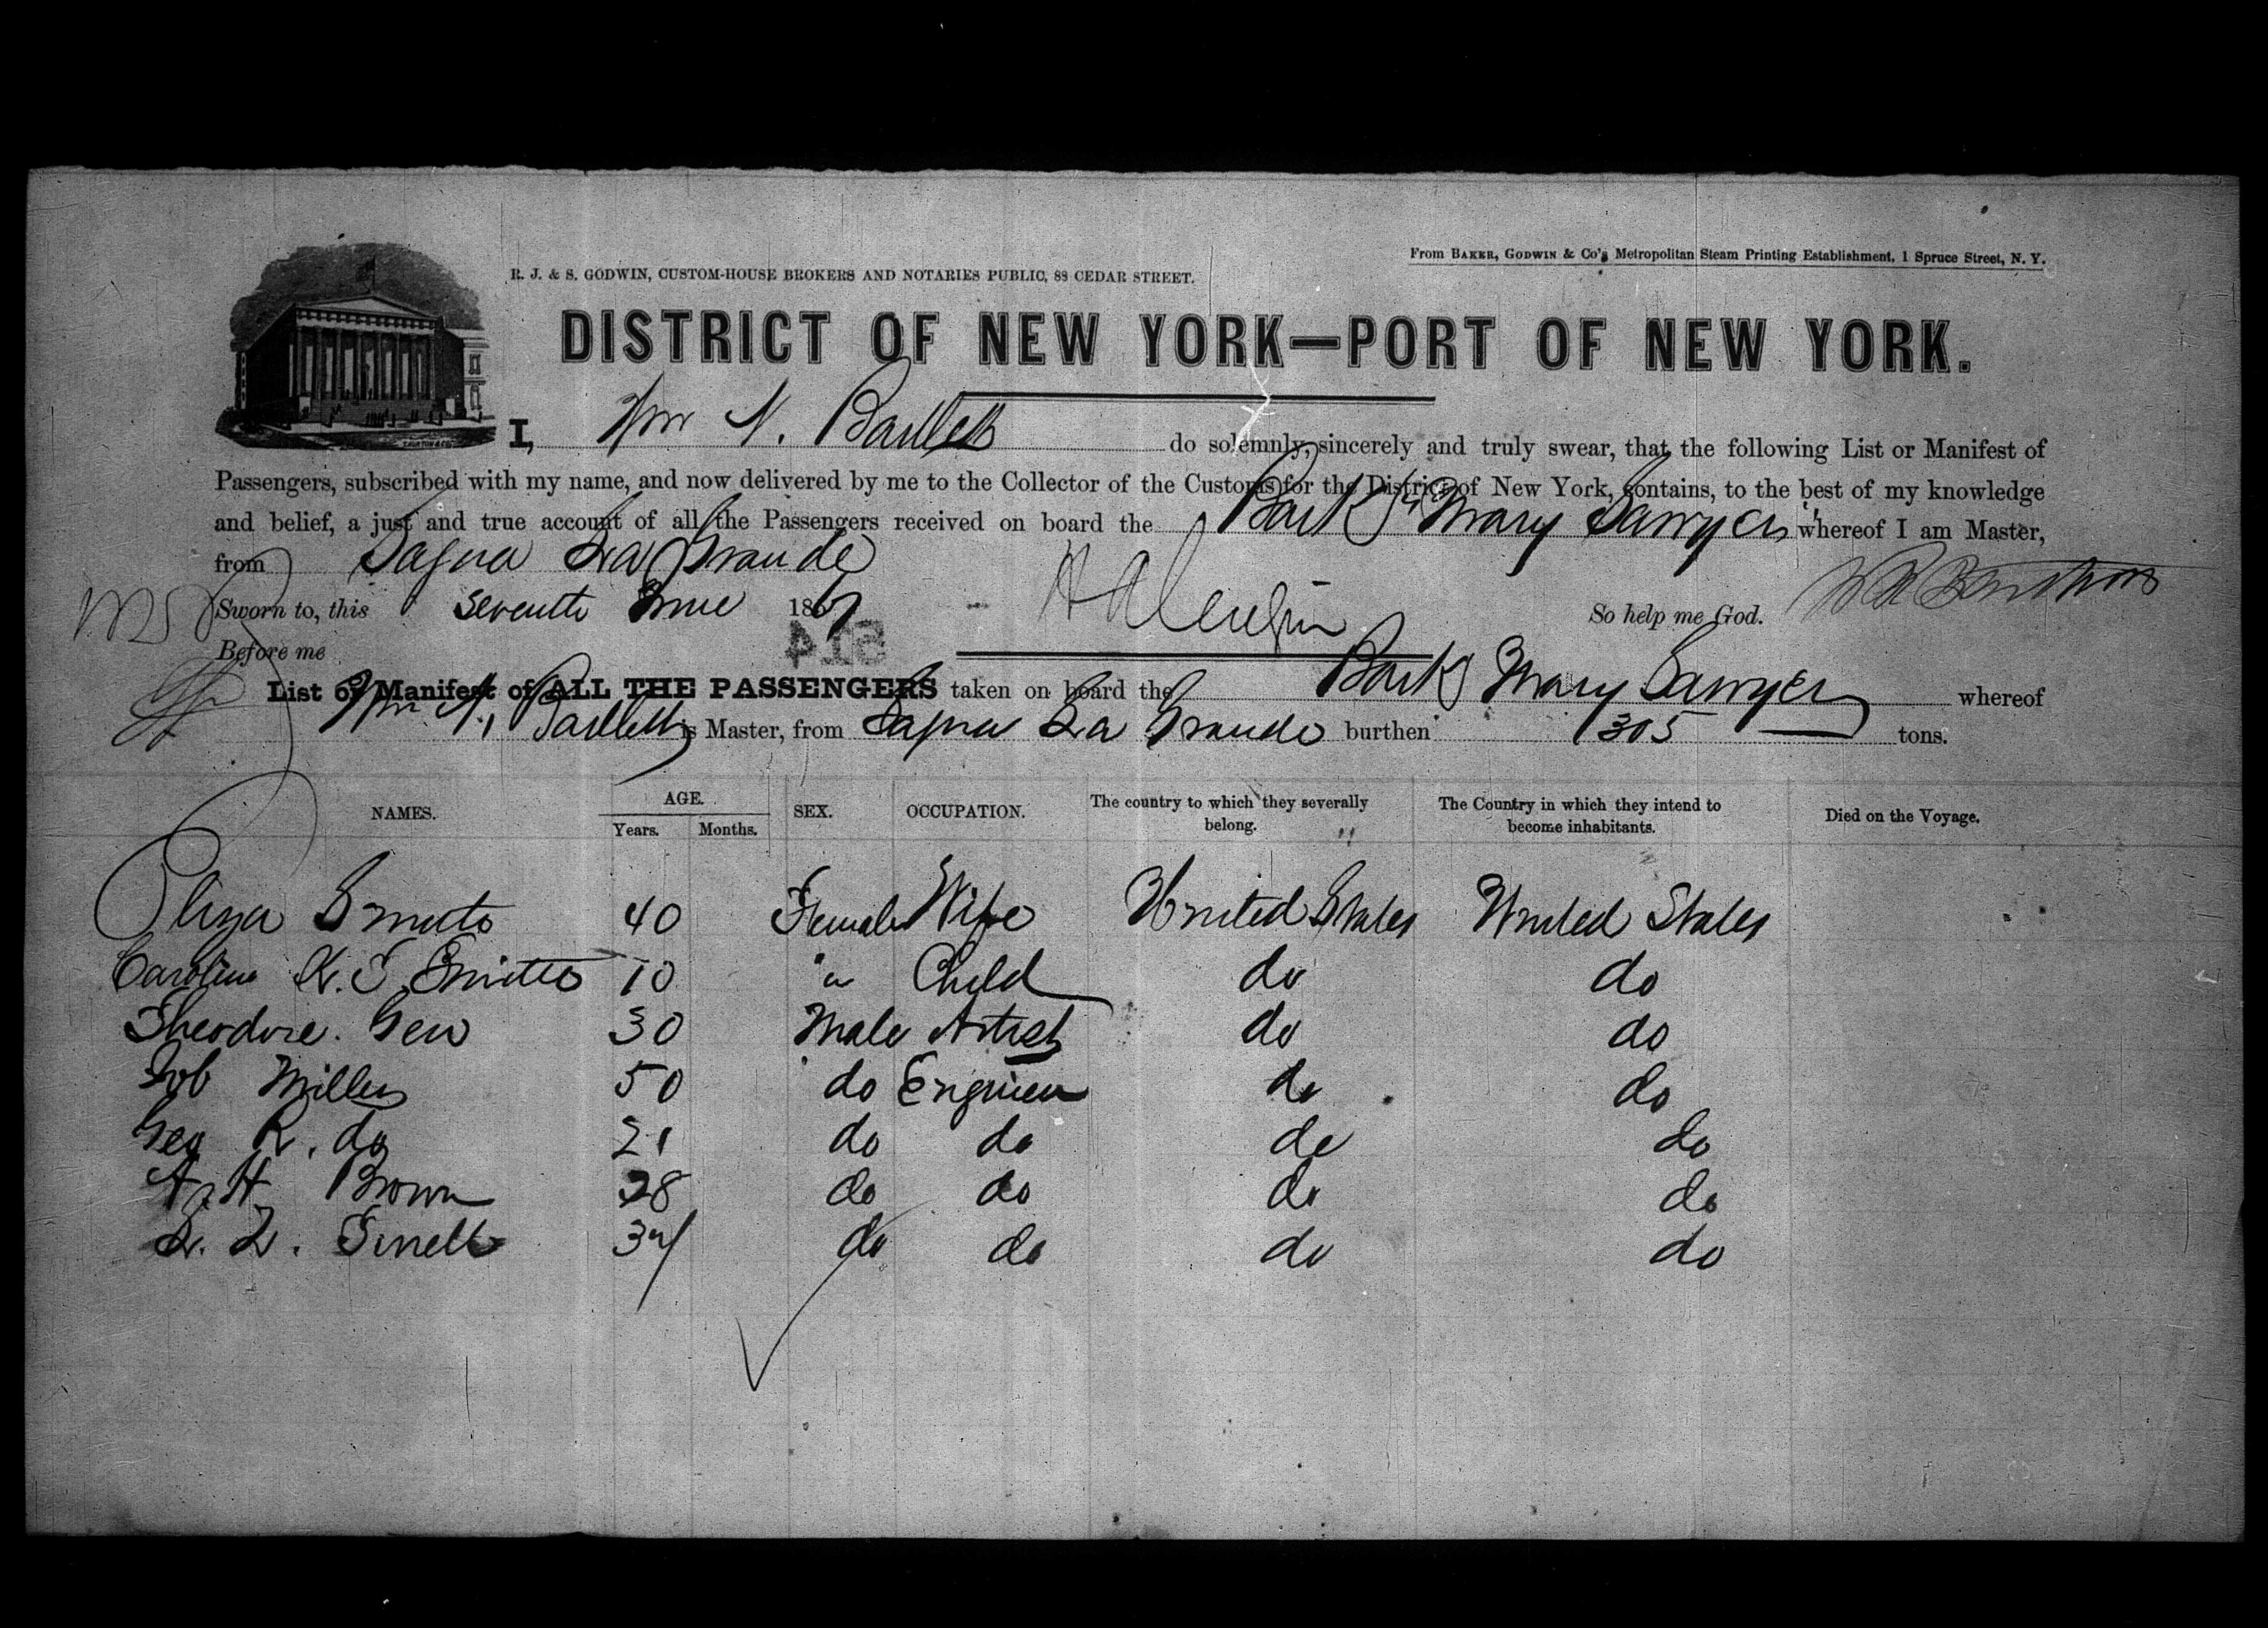 From BAKER, GODWIN & Co's Metropolitan Steam Printing Establishment, 1 Spruce Street, N. Y.
R. J. & S. GODWIN, CUSTOM-HOUSE BROKERS AND NOTARIES PUBLIC, 88 CEDAR STREET.
DISTRICT OF NEW YORK—PORT OF NEW YORK.
I, Wm N. Bartlett do solemnly, sincerely and truly swear, that the following List or Manifest of
Passengers, subscribed with my name, and now delivered by me to the Collector of the Customs for the District of New York, contains, to the best of my knowledge
and belief, a just and true account of all the Passengers received on board the Bark "Mary Sawyer" whereof I am Master,
from Sagua La Grande
Sworn to, this seventh June 1867 So help me God.
Before me
514
List or Manifest of ALL THE PASSENGERS taken on board the Bark Mary Sawyer whereof
Wm N. Bartlett is Master, from Sagua La Grande burthen 305 tons.
NAMES. AGE. SEX. OCCUPATION. The country to which they severally belong. The Country in which they intend to become inhabitants. Died on the Voyage.
Years. Months.
Eliza 40 Female Wife United States United States
Caroline 10 " Child do do
Theodore. 30 Male Artist do do
Job Miller 50 do Engineer do do
Geo R. do 21 do do do do
A. H. Brown 28 do do do do
do do do do